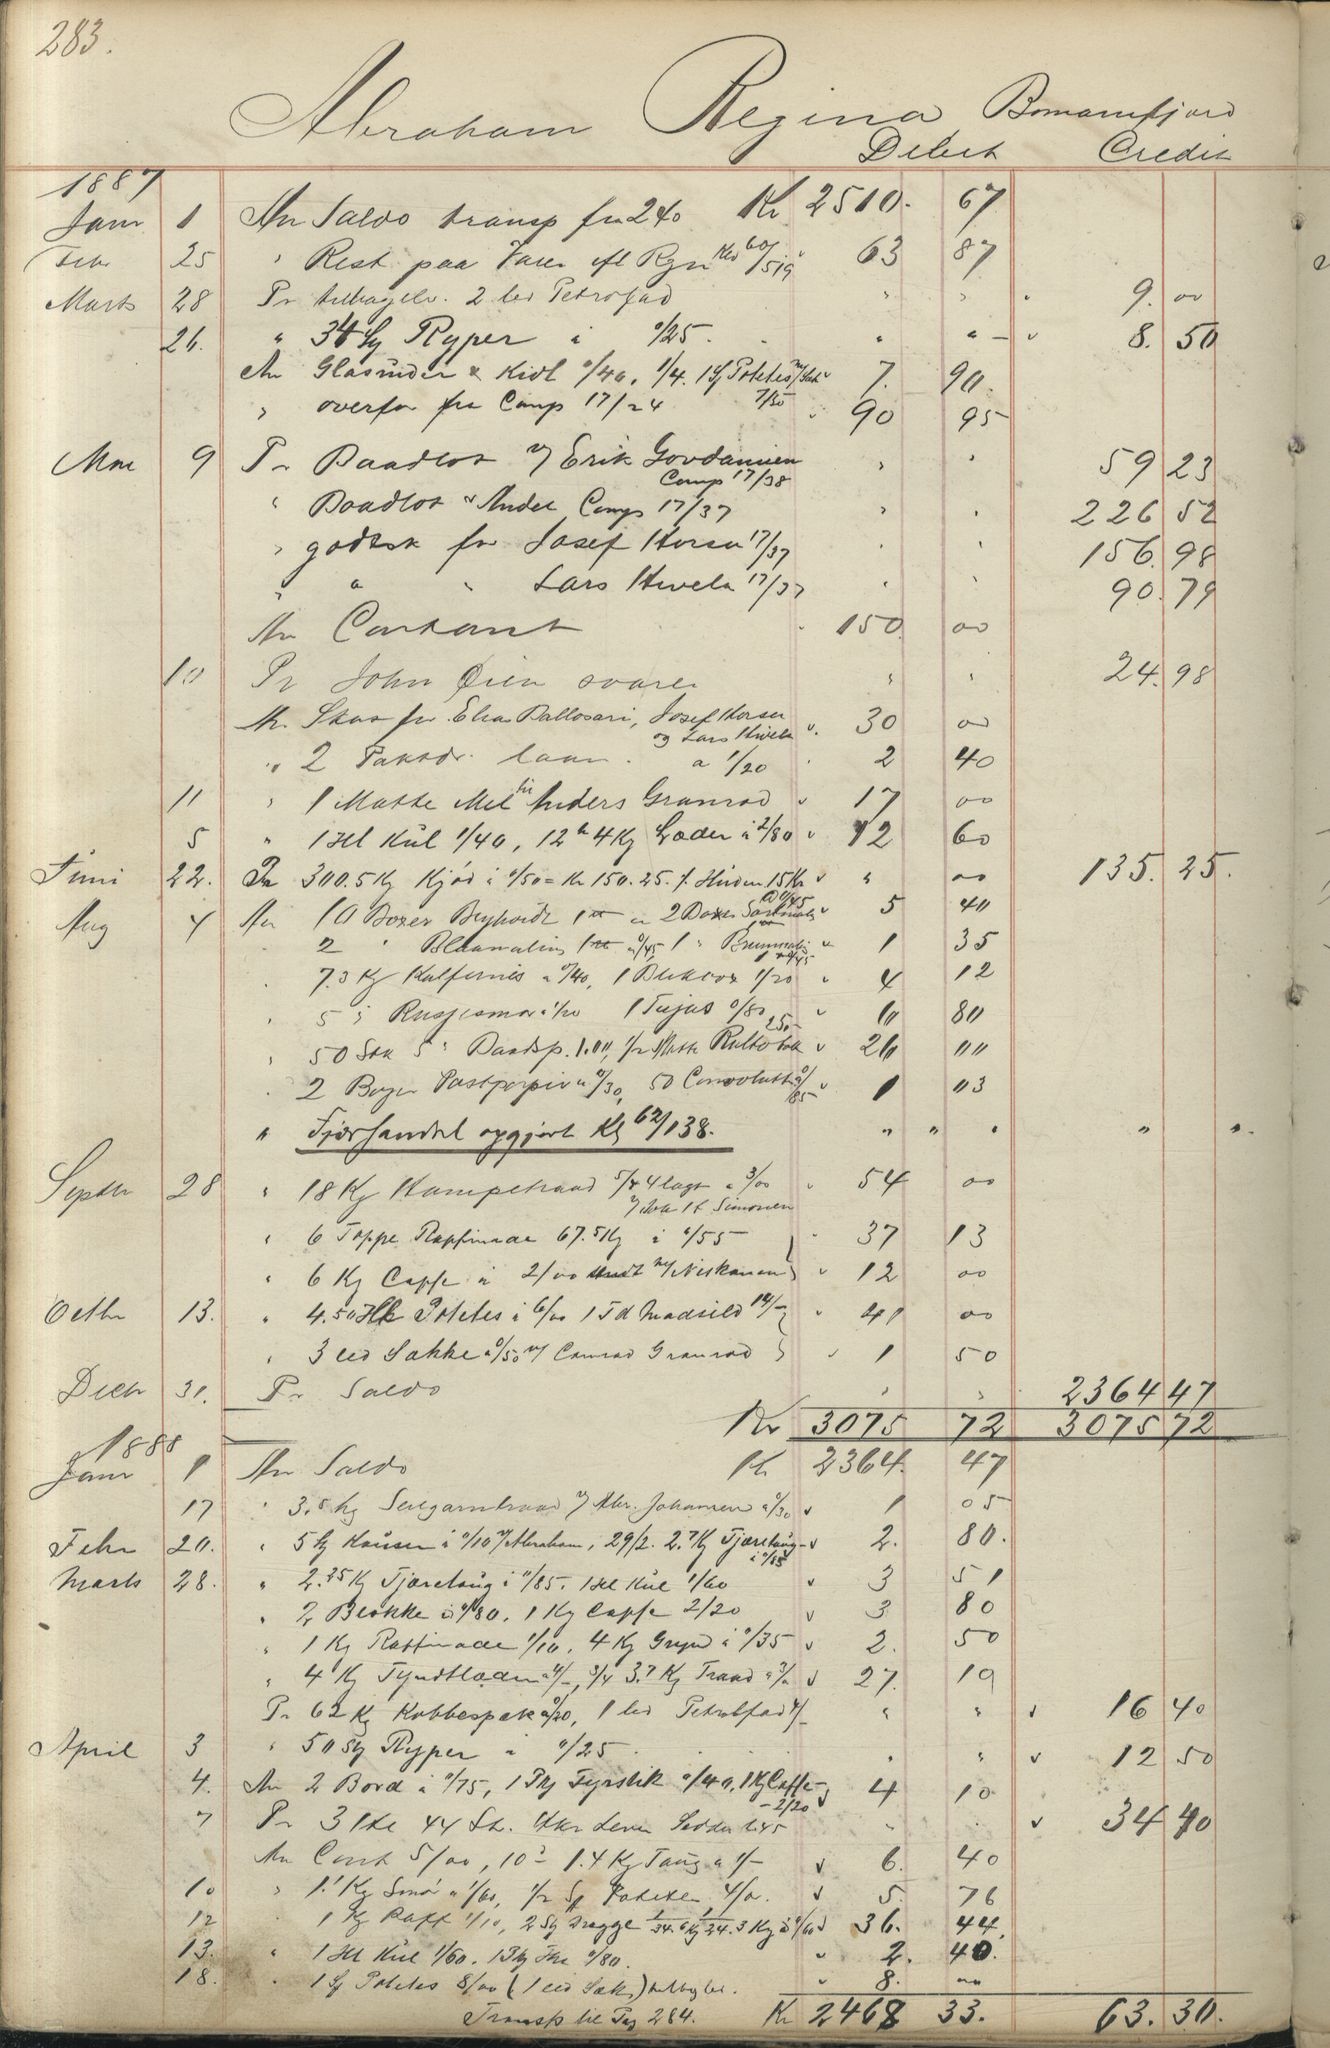 283.
Abraham Regina Bomannfjord
Debet Credit
1887
Janr 1 An Saldo transp fra 240 Kr 2510. 67
Febr 25 " Rest paa Varer efl Rgn Kld 60/519 " 63 87
Marts 28 Pr tilbagelv. 2 led Petrofad " " " 9. 00
26. " 34 Sg Ryper i 0/25. " " - v 8. 50
An Glasruder & Kidt 0/40, 1/4. 1 Sg Potetes m/Sæk v 7. 90.
" overfør fra Comp 17/24 7/50 " 90 95
Mai 9 Pr Baadlot v/ Erik Govdanien " " 59 23
Comp 17/38
" Baadlot & Andel Comp 17/37 " " 226 52
" godtsk for Josef Horsu 17/37 " " 156. 98
" " " Lars Hivela 17/37 " " 90. 79
An Contant " 150. 00
10 Pr John Øien svarer " " 24. 98
An Skat for Elias Ballosari, Josef Horsu v. 30 00
og Lars Hivela
" 2 Taktdr. laan. a 1/20 " 2 40
11 " 1 Matte Mel til Anders Granrod v 17 00
5 " 1 Hl Kul 1/40, 12 " 4 Kg Læder à 2/80 v 12 60
Juni 22. Pr 300.5 Kg Kjød i 0/50 = Kr 150.25. ./. Huden 15 Kr v " 00 135. 25.
Aug 4 An 10 Boxer Beyhvidt 1 a 2 Boxer v 5 40
2 " Blaamaling 1 a 0/45, 1 " v 1 35
" 7.3 Kg Kulfernis a 0/40, 1 Blikbox 1/20 v 4 12
" 5 " Rusjesmør i 1/10 1 Tujas 0/80 v 6 80
" 50 Stk 5 " Baadsp. 1.00, 1/2 Matte Rultobak 250 v 26 00
" 2 Bøger Postpapir a 0/30, 50 Convolutter 0/85 v 1 03
" Fjorhandel opgjort Kl 62/138. " " " " "
Septbr 28 " 18 Kg Hampetraad 5/4 4 lagt a 3/00 v 54 00
v/ Joh H Simonsen
" 6 Toppe Raffinade 67.5 Kg i 0/55 " 37 13
" 6 Kg Caffe a 2/00 v/ Niskanen v 12 00
Octbr 13. " 4.50 Hl Potetes i 6/00 1 Td Madsild 14/- v 41 00
" 3 led Sække a 0/50 v/ Conrad Granrod v 1 50
Decbr 31. Pr Saldo " " 2364 47
Kr 3075 72 3075 72
1888
Janr 1 An Saldo Kr 2364. 47
17 " 3.5 Kg Seigarntraad v/ Abr. Johansen a 0/30 v 1 05
Febr 20. " 5 Kg Kouser i 0/10 v/ Abraham, 29/2. 2.7 Kg Tjæretaug v 2. 80.
i 0/85
Marts 28. " 2.25 Kg Tjæretaug i 0/85. 1 Hl Kul 1/60 v 3 51
" 2 Blokke i 0/80, 1 Kg Caffe 2/20 v 3 80
" 1 Kg Raffinade 1/10, 4 Kg Gryn i 0/35 v 2. 50
" 4 Kg Tyndtlæder a 4/-, 3/4 3.7 Kg Traad a 3/00 v 27. 19
Pr 62 Kg Kobbespæk a 0/20, 1 led Petrolfad 4/- " " v 16 40
April 3 " 50 Sg Ryper i 0/25. " " v 12 50
4. An 2 Bord i 0/75, 1 Pk Fyrstik 0/40, 1 Kg Caffe v 4 10
- 2/20
7 Pr 3 Hl 44 Lt. Utkr Lever 1.45 " " v 34 40
An Cont 5/00, 10 - 1.4 Kg Taug a 1/- v 6. 40
10 " 1.1 Kg Smør a 1/60, 1/2 Sg Poteter 4/00. v 5. 76
12 " 1 Kg Raff 1/10, 2 Stk Dregge 1/34. 6 Kg 1/24. 3 Kg à 0/60 v 36. 44
13. " 1 Hl Kul 1/60. 1 Pk The 0/80. v 2. 40.
18. " 1 Sg Potetes 8/00 (1 led Sæk) tilbglv. v 8. 00
Transp til Pag 284. Kr 2468 33. 63. 30.